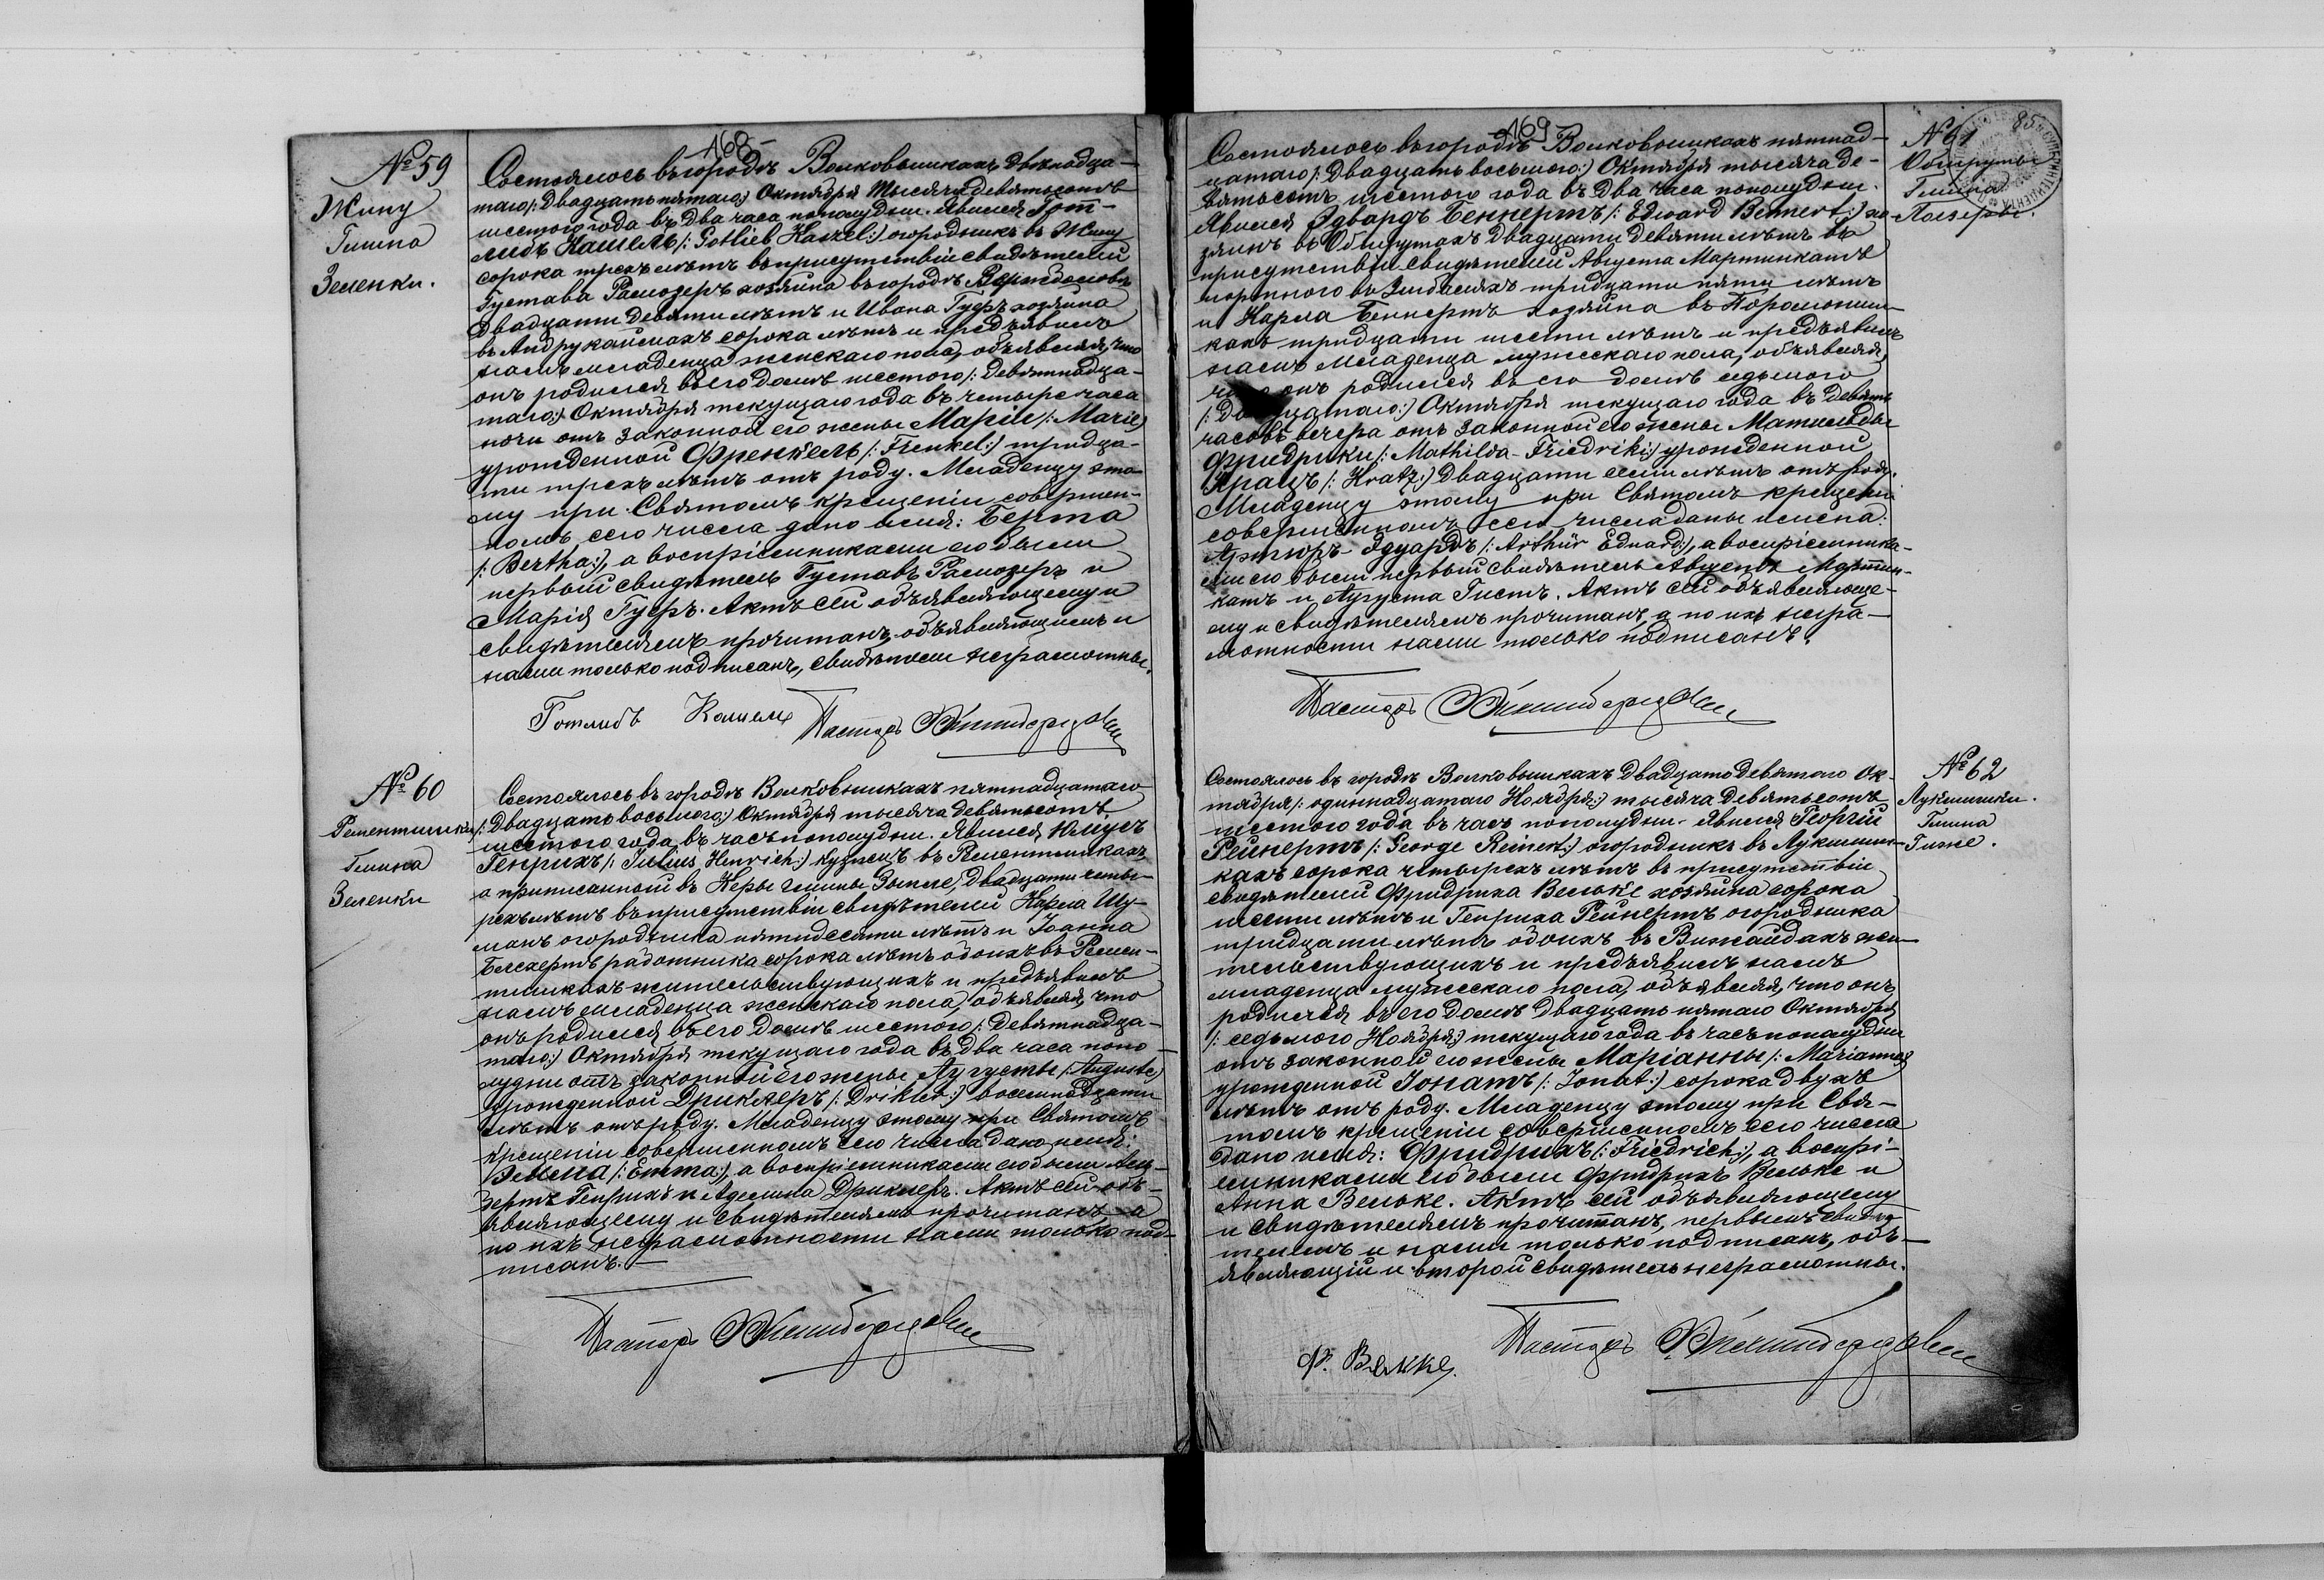 168
№ 59
Жину
Гмина
Зеленки.
Состоялось въ городѣ Волковышкахъ двѣнадца-
таго /: двадцать пятаго:/ Октября тысяча девятьсотъ
шестого года въ два часа пополудни. Явился Гот-
либъ Кашель /: Gotlieb Kaszel:/ огородникъ въ Жину
сорока трехъ лѣтъ въ присутствіи свидѣтелей
Густава хозяина въ городѣ
двадцати девяти лѣтъ и Ивана Гуфъ хозяина
въ Андрукаймахъ сорока лѣтъ и предъявилъ
намъ младенца женскаго пола, объявляя, что
онъ родился въ его домѣ шестого /: девятнадца-
таго:/ Октября текущаго года въ четыре часа
ночи отъ законной его жены Маріи /: Marie:/
урожденной Френкель /: Frenkel:/ тридца-
ти трехъ лѣтъ отъ роду. Младенцу это-
му при Святомъ крещеніи совершен-
номъ сего числа дано имя: Берта
/: Bertha:/, а воспріемниками его были
первый свидѣтель Густавъ и
Марія Гуфъ. Актъ сей объявляющему и
свидѣтелямъ прочитанъ, объявляющимъ и
нами только подписанъ, свидѣтели неграмотны.
Готлибъ Кашель Пасторъ
№ 60
Рементишки
Гмина
Зеленки
Состоялось въ городѣ Волковышкахъ пятнадцатаго
/: двадцать восьмого:/ Октября тысяча девятьсотъ
шестого года въ часъ пополудни. Явился Юліусъ
Генрихъ /: Julius Henrich:/ кузнецъ въ Рементишкахъ
а приписанной въ Керы гмины двадцати четы-
рехъ лѣтъ въ присутствіи свидѣтелей Карла Шу-
манъ огородника пятидесяти лѣтъ и Іоанна
работника сорока лѣтъ обоихъ въ Ремен-
тишкахъ жительствующихъ и предъявилъ
намъ младенца женскаго пола, объявляя, что
онъ родился въ его домѣ шестого /: девятнадца-
таго:/ Октября текущаго года въ два часа попо-
лудни отъ законной его жены Августы /: Auguste:/
урожденной Дриклеръ /: Drikler:/ восемнадцати
лѣтъ отъ роду. Младенцу этому при Святомъ
крещеніи совершенномъ сего числа дано имя:
/: Emma:/, а воспріемниками его были Аль-
бертъ Генрихъ и Аделина Дриклеръ. Актъ сей объ-
являющему и свидѣтелямъ прочитанъ а
по ихъ неграмотности нами только под-
писанъ.
Пасторъ
169
85
№ 61
Обшруты
Гмина
Состоялось въ городѣ Волковышкахъ пятнад-
цатаго /: двадцать восьмого:/ Октября тысяча де-
вятьсотъ шестого года въ два часа пополудни.
Явился Эдвардъ Беннертъ /: Edward Bennert:/ хо-
зяинъ въ Обшрутахъ двадцати девяти лѣтъ въ
присутствіи свидѣтелей Августа Мартинкатъ
тридцати пяти лѣтъ
и Карла Беннертъ хозяина въ
кахъ тридцати шести лѣтъ и предъявилъ
намъ младенца мужескаго пола, объявляя,
что онъ родился въ его домѣ седьмого
/: двадцатаго:/ Октября текущаго года въ девять
часовъ вечера отъ законной его жены Матильды
Фридрики /: Mathilda-Friedriki:/ урожденной
Крацъ /: Kratz:/ двадцати семи лѣтъ отъ роду.
Младенцу этому при Святомъ крещеніи
совершенномъ сего числа даны имена:
Артюръ-Эдуардъ /: Arthür Eduard:/, а воспріемника-
ми его были первый свидѣтель Августъ Мартин-
катъ и Августа Гистъ. Актъ сей объявляюще-
му и свидѣтелямъ прочитанъ, а по ихъ негра-
мотности нами только подписанъ.
Пасторъ
№ 62
Лукшишки.
Гмина
Гиже.
Состоялось въ городѣ Волковышкахъ двадцать девятого Ок-
тября /: одиннадцатаго Ноября:/ тысяча девятьсотъ
шестого года въ часъ пополудни. Явился Георгій
Рейнертъ /: George Reinert:/ огородникъ въ Лукшиш-
кахъ сорока четырехъ лѣтъ въ присутствіи
свидѣтелей Фридриха Вельке хозяина сорока
шести лѣтъ и Генриха Рейнертъ огородника
тридцати лѣтъ обоихъ въ Вижайдахъ жи-
тельствующихъ и предъявилъ намъ
младенца мужескаго пола, объявляя, что онъ
родился въ его домѣ двадцать пятаго Октября
/: седьмого Ноября:/ текущаго года въ часъ пополудни
отъ законной его жены Маріанны /: Marianna:/
урожденной Іонатъ /: Jonat:/ сорока двухъ
лѣтъ отъ роду. Младенцу этому при Свя-
томъ крещеніи совершенномъ сего числа
дано имя: Фридрихъ /: Friedrich:/, а воспрі-
емниками его были Фридрихъ Вельке и
Анна Вельке. Актъ сей объявляющему
и свидѣтелямъ прочитанъ, первымъ свидѣ-
телемъ и нами только подписанъ, объ-
являющій и второй свидѣтель неграмотны.
Ф. Велке. Пасторъ